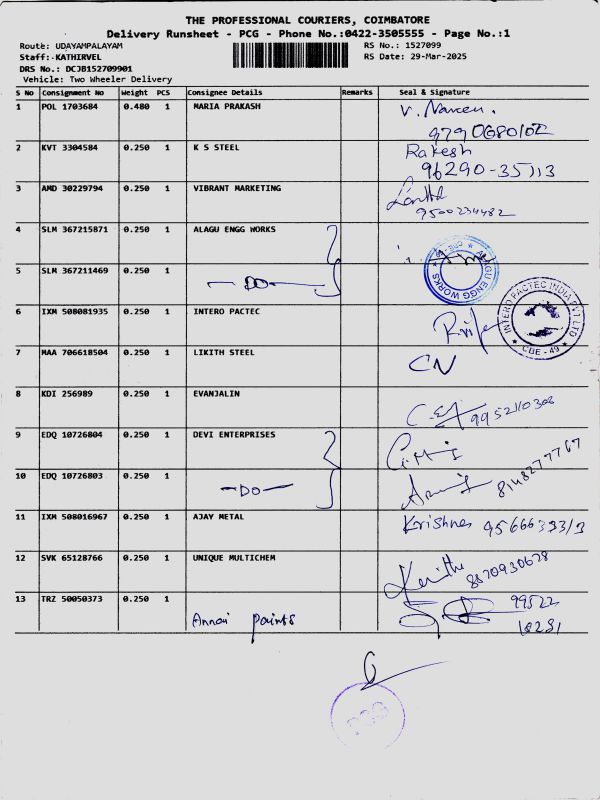 THE PROFESSIONAL COURIERS, COIMBATORE
Delivery Runsheet - PCG - Phone No.:0422-3505555 - Page No.:1
Route: UDAYAMPALAYAM RS No.: 1527099
Staff: KATHIRVEL RS Date: 29-Mar-2025
DRS No.: DCJB152709901
Vehicle: Two Wheeler Delivery
S No Consignment No Weight PCS Consignee Details Remarks Seal & Signature
1 POL 1703684 0.480 1 MARIA PRAKASH V. Naveen.
2 KVT 3304584 0.250 1 K S STEEL Rakesh
96290-35113
3 AMD 30229794 0.250 1 VIBRANT MARKETING
9500234482
4 SLM 367215871 0.250 1 ALAGU ENGG WORKS
ALAGU ENGG WORKS
5 SLM 367211469 0.250 1 -DO-
6 IXM 508081935 0.250 1 INTERO PACTEC
INTERO PACTEC INDIA PVT LTD
CBE - 49
7 MAA 706618504 0.250 1 LIKITH STEEL CN
8 KDI 256989 0.250 1 EVANJALIN 9952110308
9 EDQ 10726804 0.250 1 DEVI ENTERPRISES
10 EDQ 10726803 0.250 1 -DO- 8148277767
11 IXM 508016967 0.250 1 AJAY METAL Krishnes
12 SVK 65128766 0.250 1 UNIQUE MULTICHEM 8870930678
13 TRZ 50050373 0.250 1 Annai paints 99522
10231
PCG